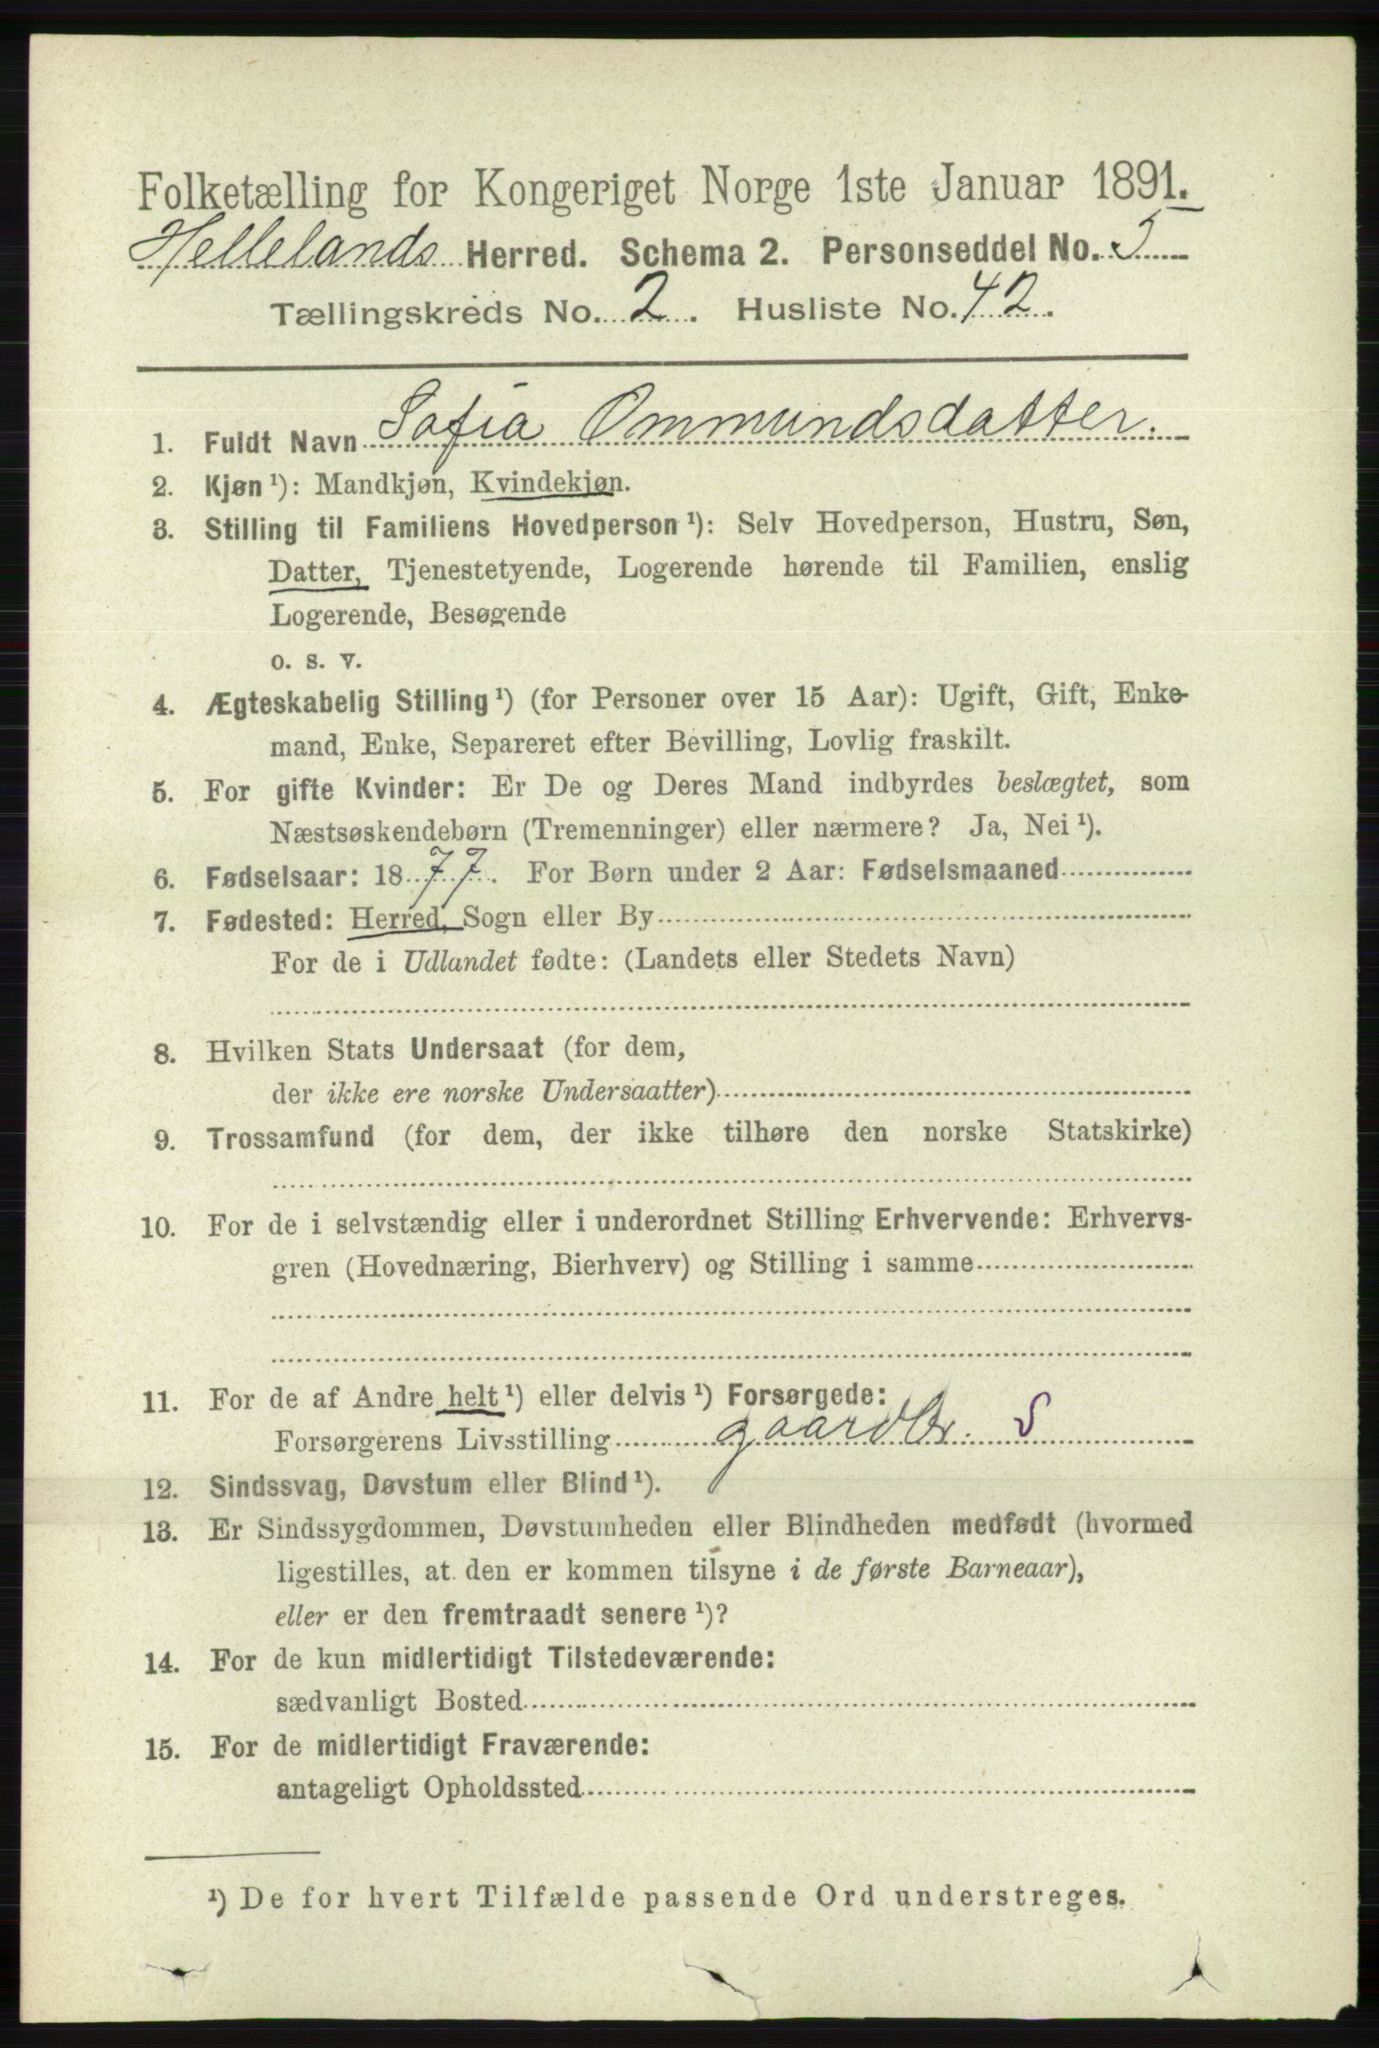 Folketælling for Kongeriget Norge 1ste Januar 1891.
Hellelands Herred. Schema 2. Personseddel No. 5
Tællingskreds No. 2. Husliste No. 42.
1. Fuldt Navn Sofia Ommundsdatter.
2. Kjøn ¹): Mandkjøn, Kvindekjøn.
3. Stilling til Familiens Hovedperson ¹): Selv Hovedperson, Hustru, Søn,
Datter, Tjenestetyende, Logerende hørende til Familien, enslig
Logerende, Besøgende
o. s. v.
4. Ægteskabelig Stilling ¹) (for Personer over 15 Aar): Ugift, Gift, Enke-
mand, Enke, Separeret efter Bevilling, Lovlig fraskilt.
5. For gifte Kvinder: Er De og Deres Mand indbyrdes beslægtet, som
Næstsøskendebørn (Tremenninger) eller nærmere? Ja, Nei ¹).
6. Fødselsaar: 1877. For Børn under 2 Aar: Fødselsmaaned
7. Fødested: Herred, Sogn eller By
For de i Udlandet fødte: (Landets eller Stedets Navn)
8. Hvilken Stats Undersaat (for dem,
der ikke ere norske Undersaatter)
9. Trossamfund (for dem, der ikke tilhøre den norske Statskirke)
10. For de i selvstændig eller i underordnet Stilling Erhvervende: Erhvervs-
gren (Hovednæring, Bierhverv) og Stilling i samme
11. For de af Andre helt ¹) eller delvis ¹) Forsørgede:
Forsørgerens Livsstilling gaardbr. S
12. Sindssvag, Døvstum eller Blind ¹).
13. Er Sindssygdommen, Døvstumheden eller Blindheden medfødt (hvormed
ligestilles, at den er kommen tilsyne i de første Barneaar),
eller er den fremtraadt senere ¹)?
14. For de kun midlertidigt Tilstedeværende:
sædvanligt Bosted
15. For de midlertidigt Fraværende:
antageligt Opholdssted
¹) De for hvert Tilfælde passende Ord understreges.